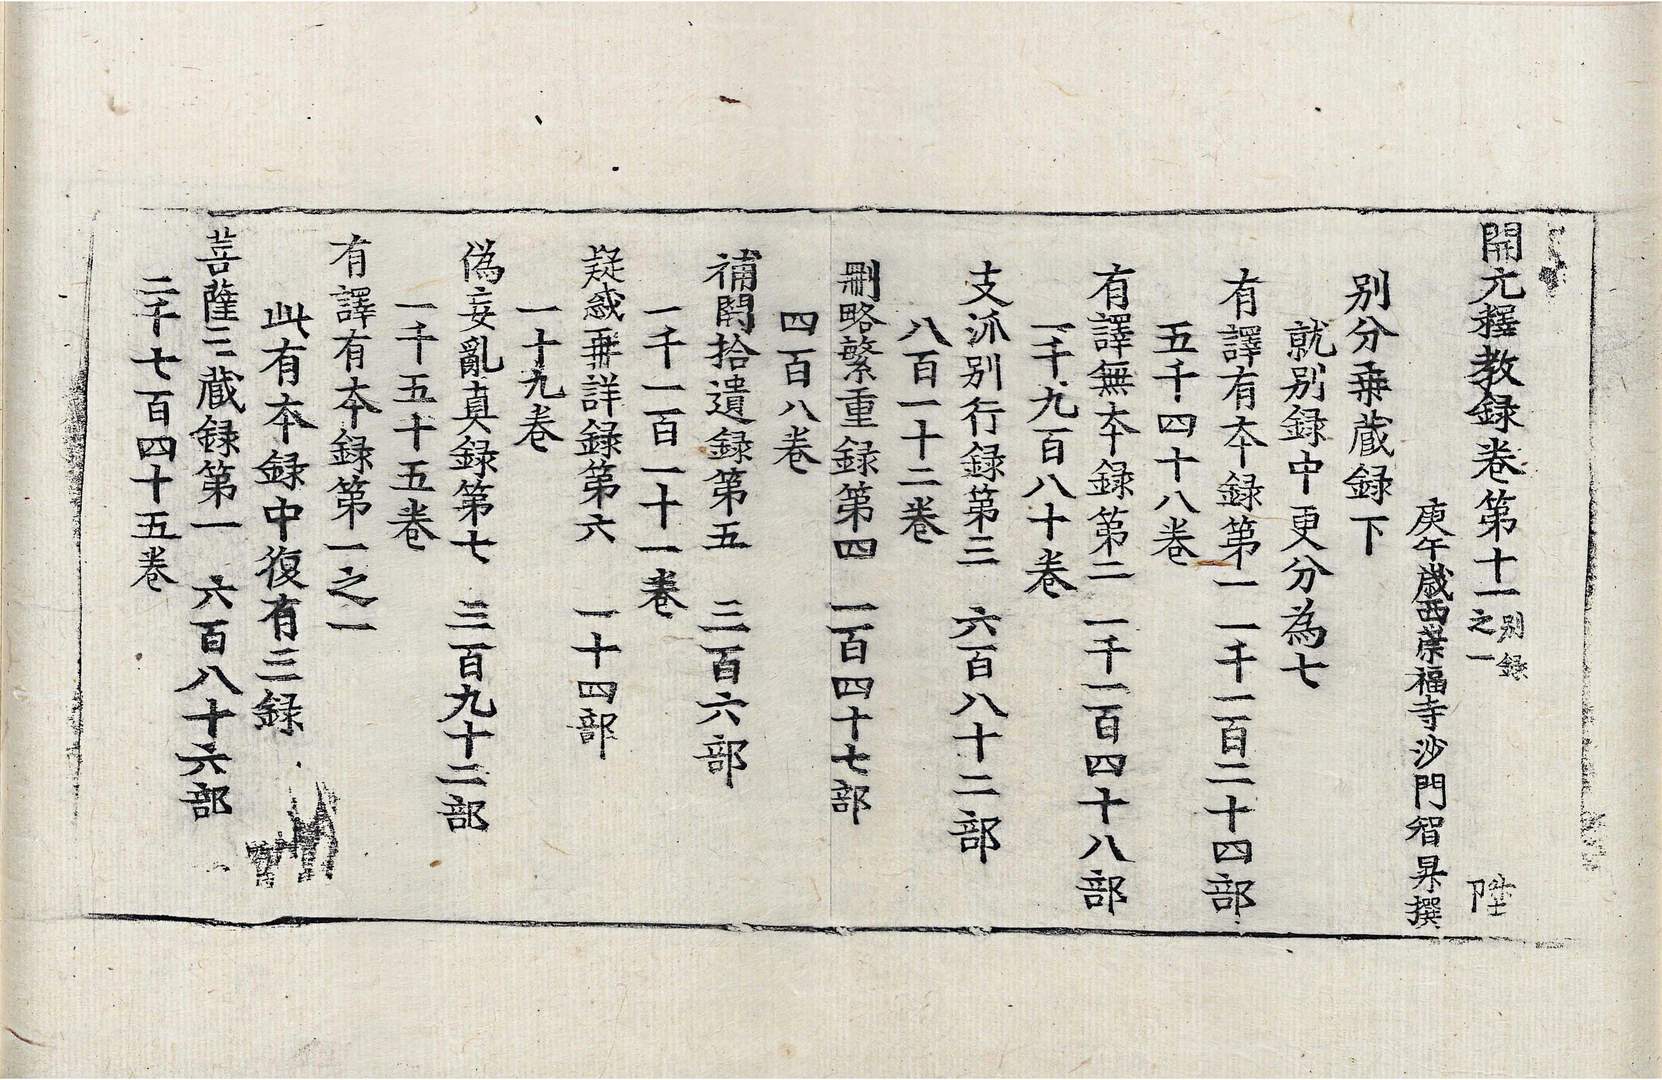 開元釋教録卷第十一 別録之一 陞
庚午歳西崇福寺沙門智昇撰
別分乗蔵録下
就別録中更分為七
有譯有本録第一 一千一百二十四部
五千四十八卷
有譯無本録第二 一千一百四十八部
一千九百八十卷
支派別行録第三 六百八十二部
八百一十二卷
刪略繁重録第四 一百四十七部
四百八卷
補闕拾遺録第五 三百六部
一千一百一十一卷
疑惑再詳録第六 一十四部
一十九卷
偽妄亂真録第七 三百九十二部
一千五十五卷
有譯有本録第一之一
此有本録中復有三録
菩薩三蔵録第一 六百八十六部
二千七百四十五卷